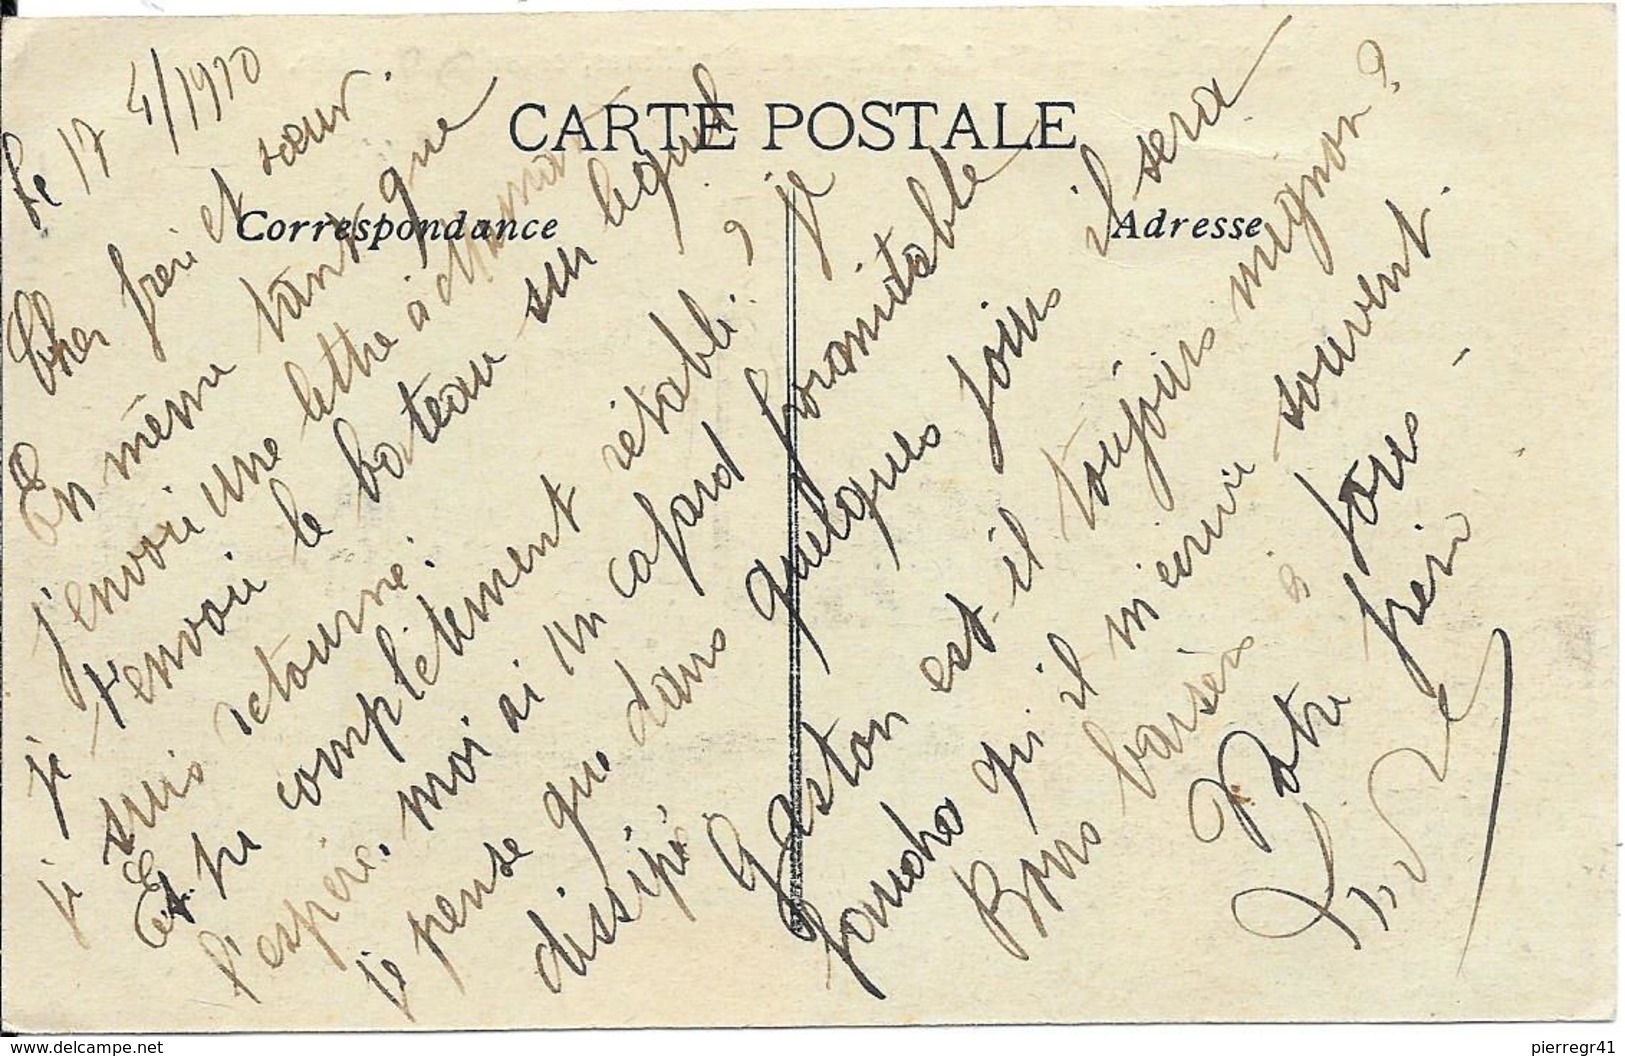 CARTE POSTALE
Correspondance
Adresse
Le 17 4/1910
Cher frère et sœur.
En même tant que
j'envoie une lettre à
je t'envoie le bateau sur lequel
je suis retourné.
Es tu complètement rétabli, je
l'espère. moi ai un cafard foramitable
je pense que dans quelques jours il sera
dissipé
Gaston est il toujours mignon?
qu'il m'écrive souvent.
Bons baisers à tous
Votre frère
www.delcampe.net
pierregr41